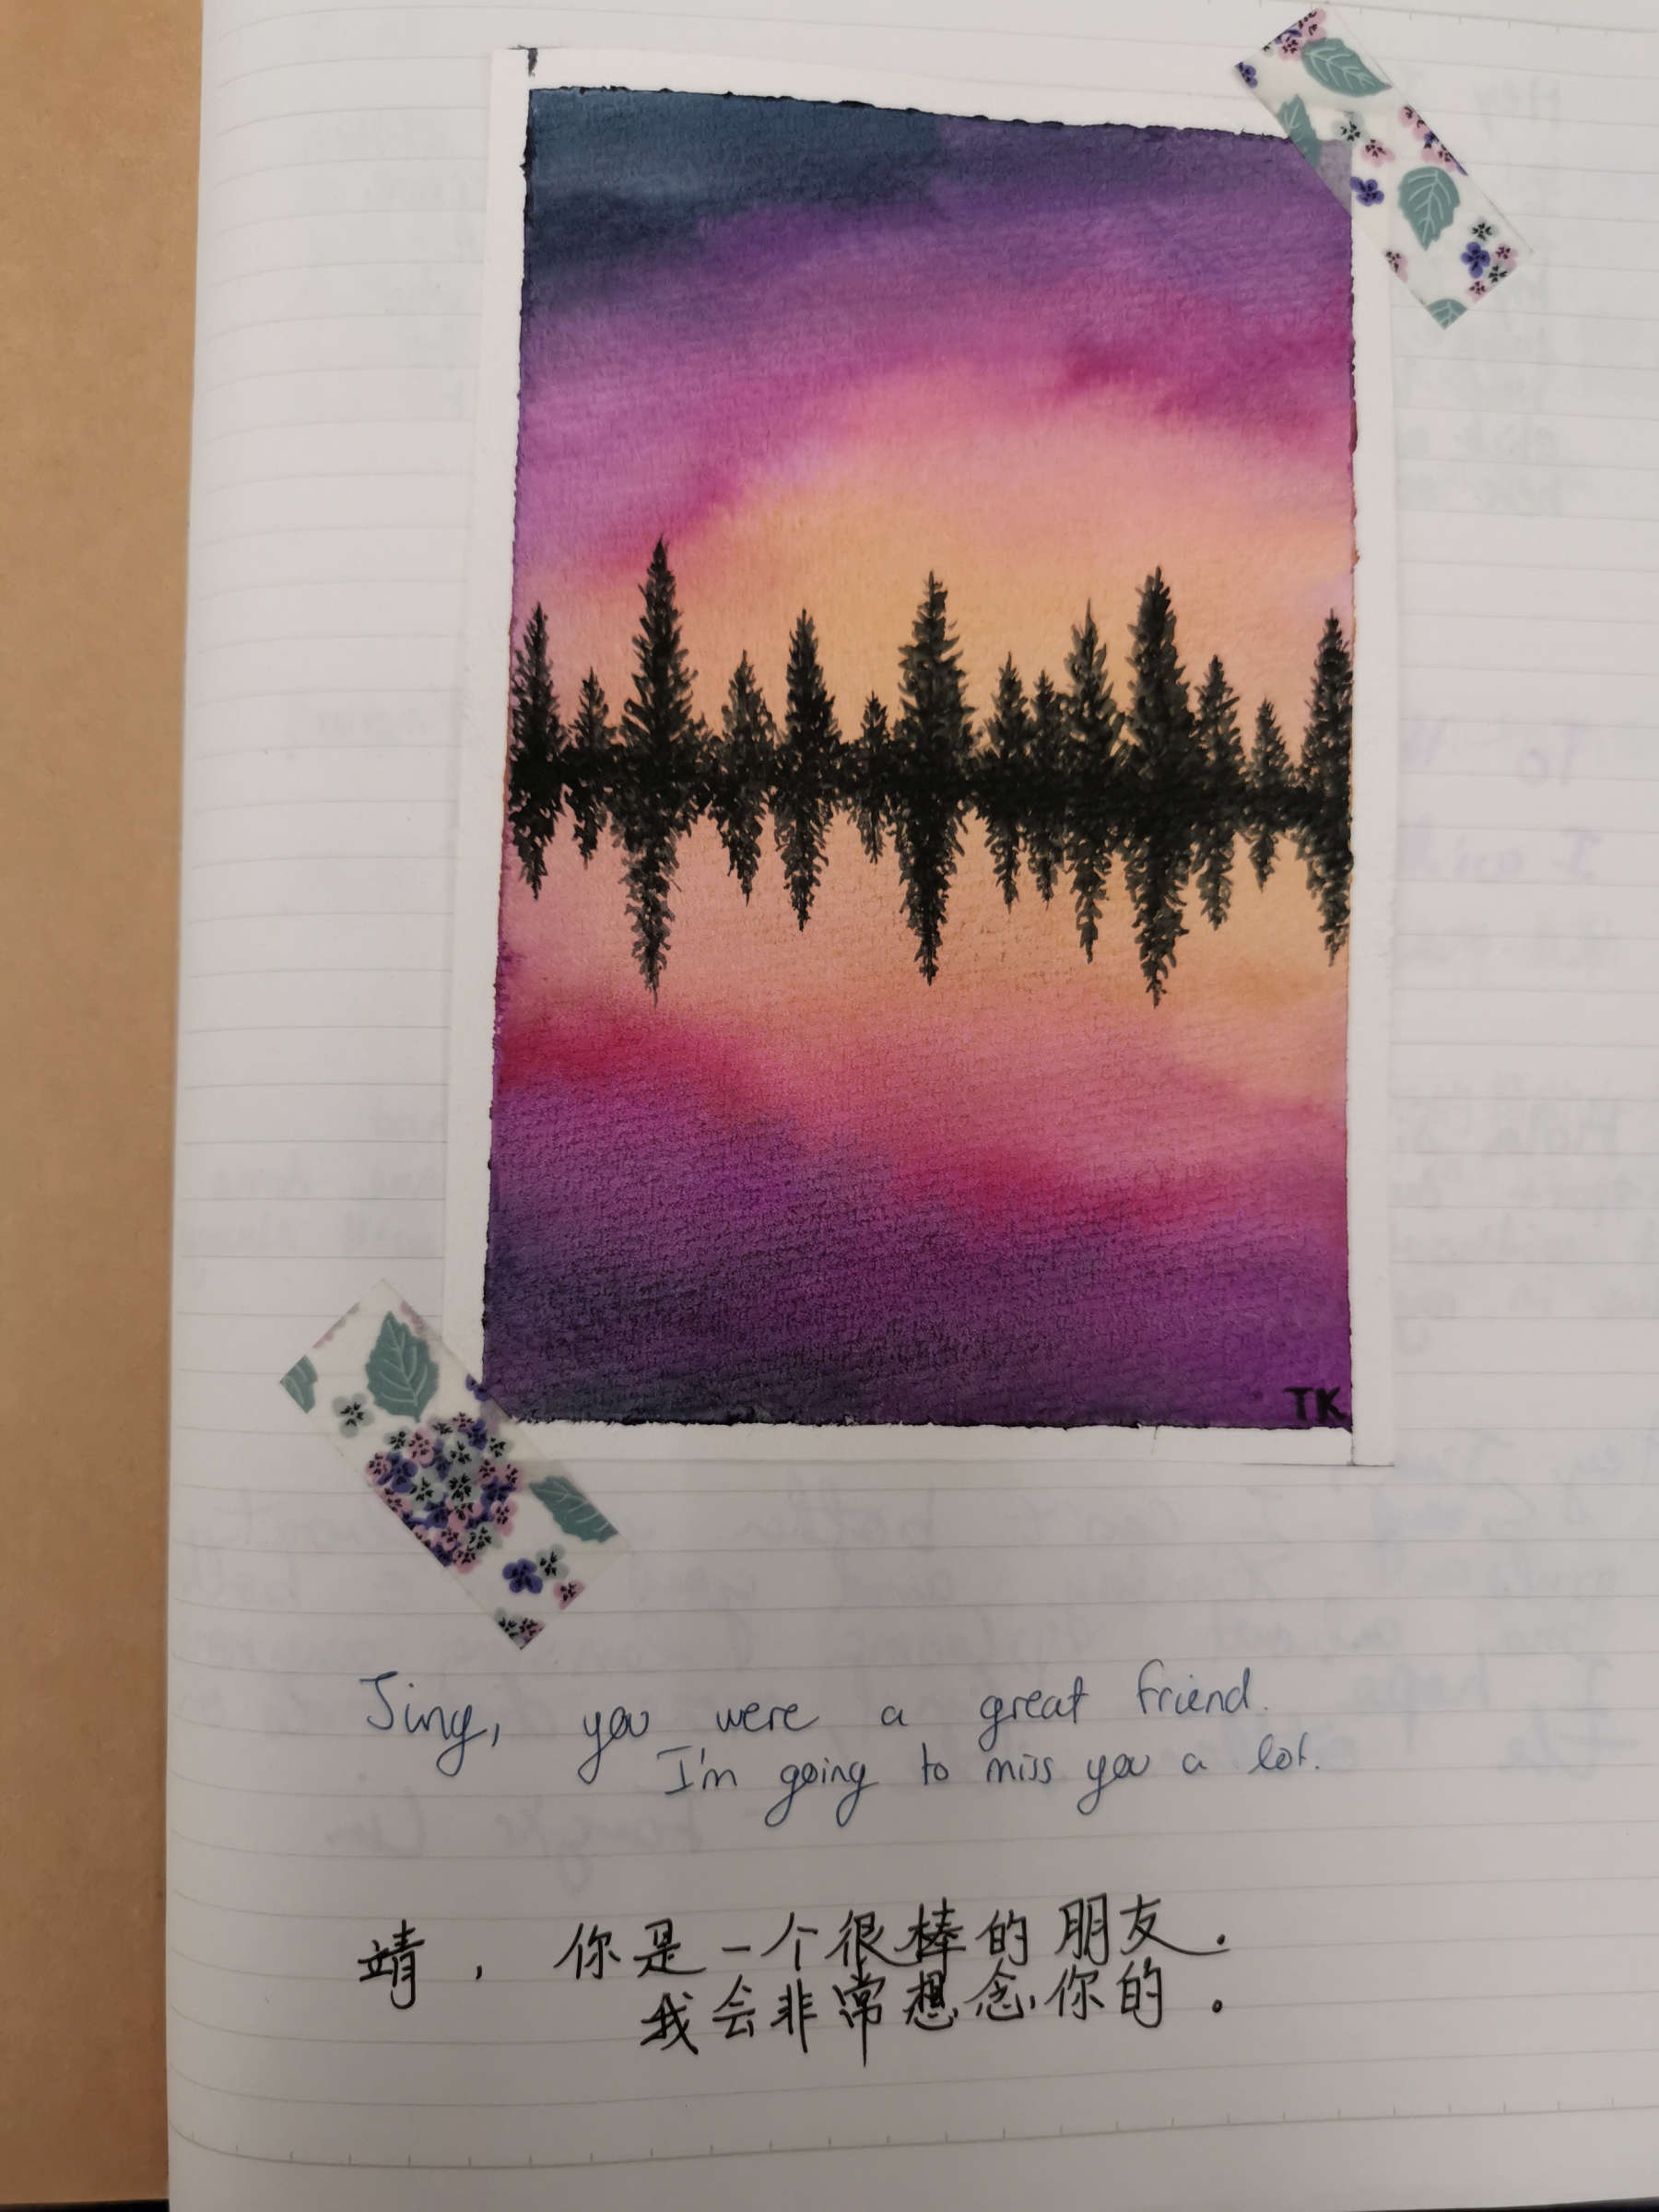 TK
Jing, you were a great friend.
I'm going to miss you a lot.
靖，你是一个很棒的朋友.
我会非常想念你的.